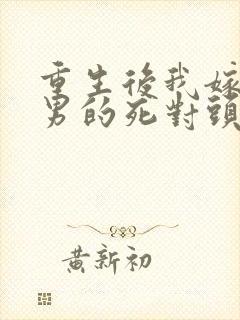 重生後我嫁
男的死對頭
黃新初